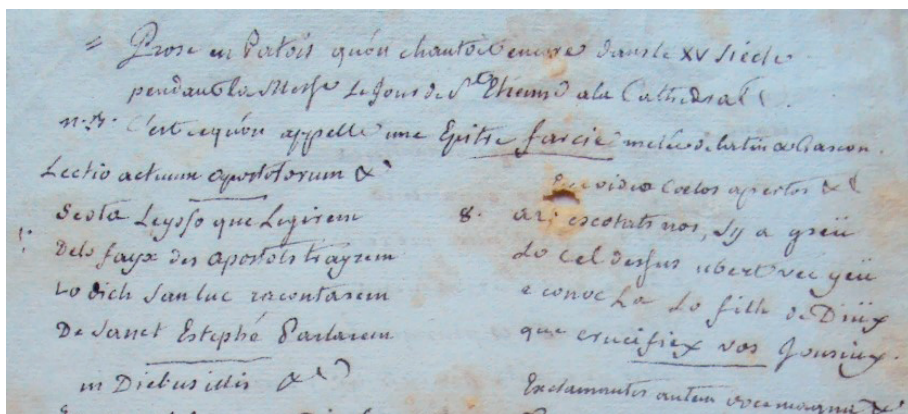 = Prose en Patois qu'on chantoit encore dans le XV Siécle
pendant la Messe Le Jour de St Etienne a la Cathedrale.
n.3. C'est ce qu'on appelle une Epitre farcie melée de latin & Gascon.
Lectio actuum apostolorum &c
Sesta Leysso que Legirem
Dels fayx des apostols trayrem
Lo dich San luc racontarem
De Sanct Estephe Parlarem
in Diebus illis &c
video Coelos apertos &c
8. escotats nos, sy a greü
Lo cel dessus ubert vec yeü
e conoc La Lo filh de Diüx
que crucifiex vos Jousiux.
Exclamantes autem voce magna &c